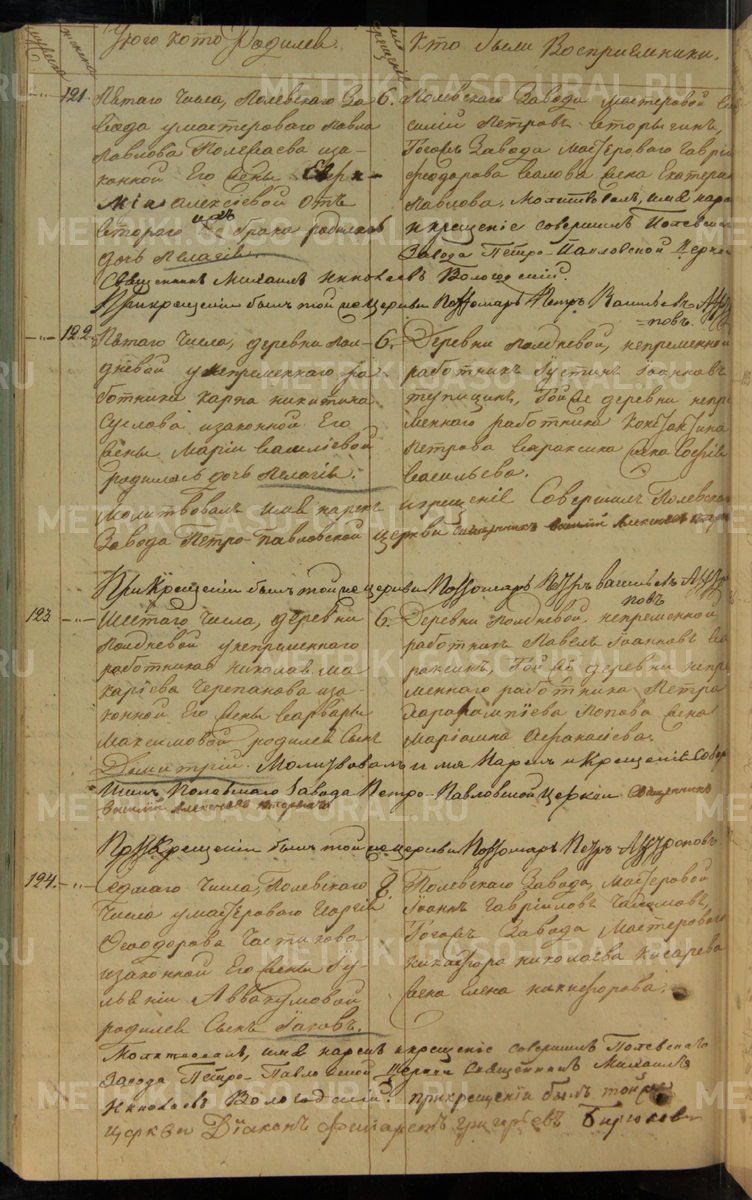 У кого кто Родился.
Кто были Восприемники.
121.
Пятаго числа, Полевскаго За
вода у мастероваго Павла
Павлова Полежаева и за
конной Его жены Евфи-
міи Алексіевой отъ
втораго брака родилась
дочь Пелагія.
6.
Полевскаго Завода мастеровой Ва
силій Петровъ
Тогожъ Завода Мастероваго Гаврі
Феодорова жена Екатери
Павлова. Молитвовалъ, имя наре
и крещеніе совершилъ Полевск
Завода Петро-Павловской Церкви
Священникъ Михаилъ Николаевъ Вологодскій.
При крещеніи былъ той же церкви Пономарь Петръ Васильевъ
122.
Пятаго числа, деревни Пол-
дневой у непременнаго ра-
ботника Карпа Никитина
Суслова и законной Его
жены Маріи Василіевой
родилась дочь Пелагія.
6.
Деревни Полдневой, непременной
работникъ Іустинъ Іоанновъ
Тупицинъ, Той же деревни непре
меннаго работника Константина
Петрова жена Софія
Васильева.
Молитвовалъ имя нарекъ и крещеніе Совершилъ Полевска
Завода Петро-Павловской церкви священникъ Василій Алексіевъ
При Крещеніи былъ той же церкви Пономарь Петръ Васильевъ
123.
Шестаго числа, деревни
Полдневой у непременнаго
работника Николая Ма
каріева Черепанова и за-
конной Его жены Варвары
Максимовой родился сынъ
Димитрій.
6.
Деревни Полдневой, непременной
работникъ Павелъ Іоанновъ
Той жъ деревни непре
меннаго работника Петра
Харалампіева Попова жена
Маріамна Афанасіева.
Молитвовалъ имя Нарекъ и Крещеніе Совер
шилъ Полевскаго Завода Петро-Павловской Церкви Священникъ
Василій Алексіевъ
При Крещеніи былъ той же церкви Пономарь Петръ Андроповъ
124.
Седмаго числа, Полевскаго
Числа у мастероваго Георгія
Феодорова Частихова
и законной Его жены Іу-
ліаніи Аввакумовой
родился сынъ Іаковъ.
8.
Полевскаго Завода, Мастеровой
Іоаннъ Гавріиловъ
Тогожъ Завода Мастероваго
Никифора Николаева Кисарева
жена Елена Никифорова.
Молитвовалъ, имя нарекъ и крещеніе совершилъ Полевскаго
Завода Петро-Павловской Церкви Священникъ Михаилъ
Николаевъ Вологодскій. При крещеніи былъ той же
церкви Діаконъ Филаретъ Григорьевъ Бирюков
METRIKI.GASO-URAL.RU